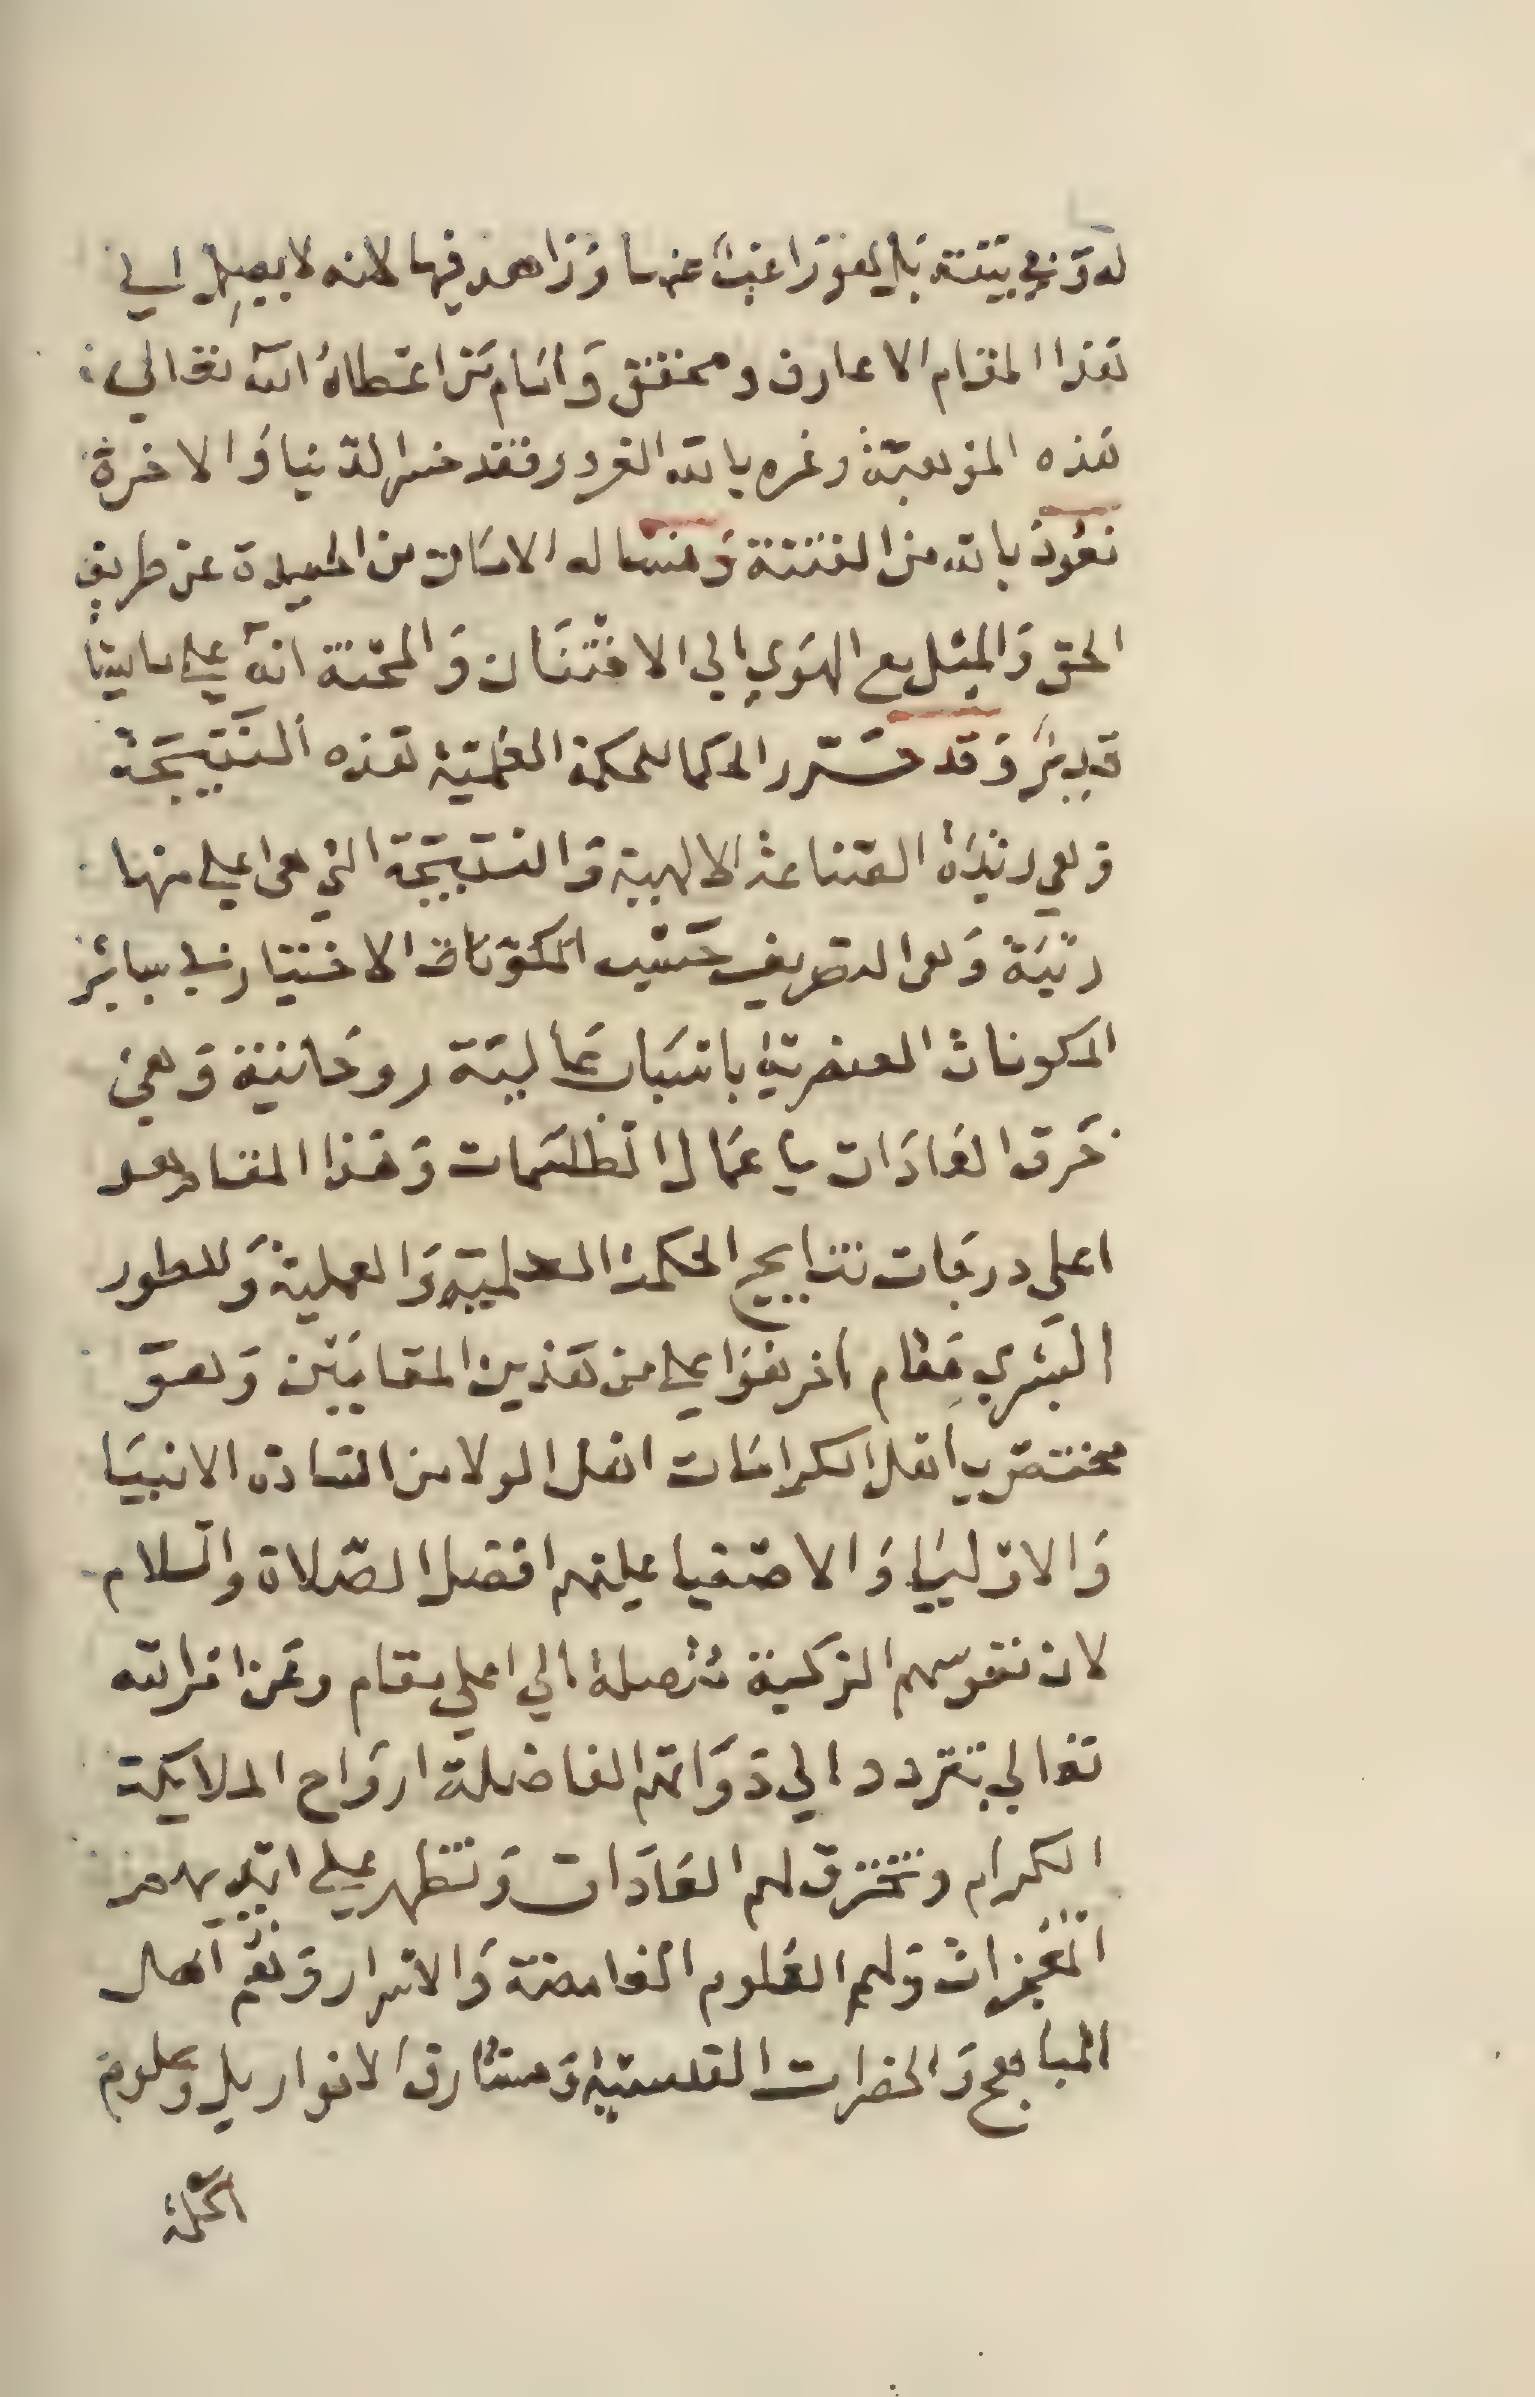 له وفي بل هو راغب عنها وزاهد فيها لانه لا يصل الي
هذا المقام الا عارف ومحقق واما من اعطاه الله تعالي
هذه الموهبة وغره بالله الغرور فقد خسر الدنيا والاخرة
نعوذ بالله من الفتنة ونساله الامان من الحيدة عن طريق
الحق والميل مع الهوي الي الافتنان والمحنة انه علي ما يشا
قدير وقد قرر الحكما للحكمة العلمية هذه النتيجة
وهي زبدة الصناعة الالهية والنتيجة التي هي اعلي منها
رتبة وهي التصريف حسب الاختيار في ساير
المكونات العنصرية باسباب عالية روحانية وهي
خرق العادات باعمال الطلسمات وهذا المقام هو
اعلي درجات نتايج الحكمة العلمية والعملية وللطور
البشري مقام اخر هو اعلي من هذين المقامين وهو
مختص باهل الكرامات اهل الولا من السادة الانبيا
والاوليا والاصفيا عليهم افضل الصلاة والسلام
لان نفوسهم الزكية متصلة الي اعلي مقام وعن امر الله
تعالي تتردد الي ذواتهم الفاضلة ارواح الملايكة
الكرام وتخترق لهم العادات وتظهر علي ايديهم
المعجزات ولهم العلوم الغامضة والاسرار وهم اهل
المباهج والحضرات القدسية ومشارق الانوار بل وعلوم
الحكمة